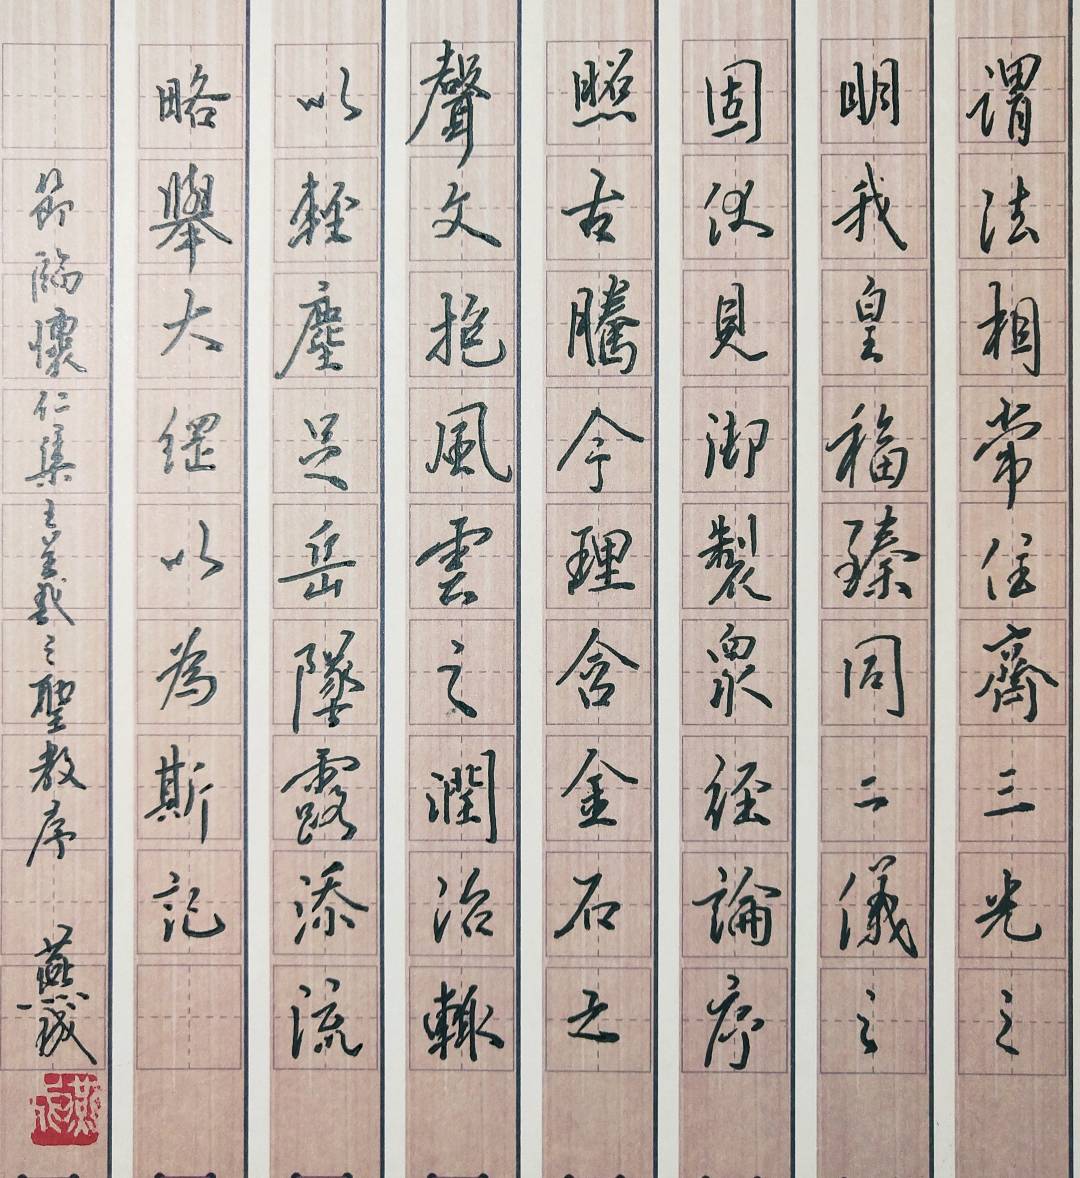 謂法相常住齊三光之
明我皇福臻同二儀之
固伏見御製衆經論序
照古騰今理含金石之
聲文抱風雲之潤治輒
以輕塵足岳墜露添流
略舉大綱以為斯記
節臨懷仁集王羲之聖教序 燕